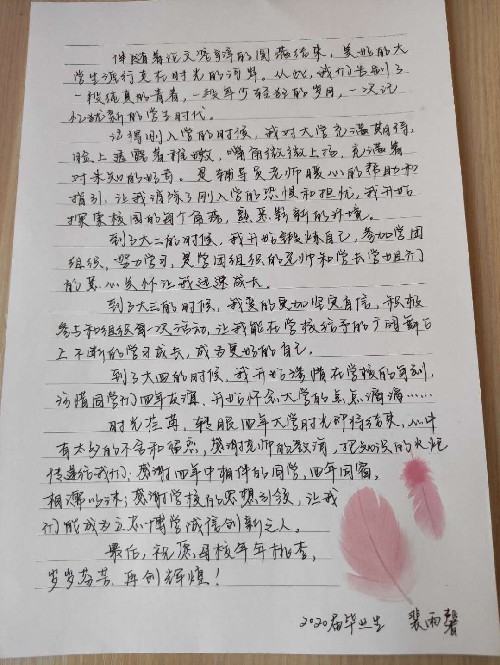 伴随着论文答辩的圆满结束，美好的大
学生活行走在时光的河畔。从此，我们告别了
一段纯真的青春，一段年少轻狂的岁月，一次记
忆犹新的学生时代。
记得刚入学的时候，我对大学充满期待，
脸上透露着稚嫩，嘴角微微上扬，充满着
对未知的好奇。是辅导员老师暖心的帮助和
指引，让我消除了刚入学的恐惧和担忧，我开始
探索校园的每个角落，熟悉崭新的环境。
到了大二的时候，我开始锻炼自己，参加学团
组织，努力学习，是学团组织的老师和学长学姐们
的悉心关怀让我迅速成长。
到了大三的时候，我变的更加坚定自信，积极
参与和组织每次活动，让我能在学校给予的广阔舞台
上不断的学习成长，成为更好的自己。
到了大四的时候，我开始珍惜在学校的每刻，
珍惜同学们四年友谊，开始怀念大学的点点滴滴……
时光荏苒，转眼四年大学时光即将结束，心中
有太多的不舍和留恋，感谢老师的教诲，把知识的火炬
传递给我们；感谢四年中相伴的同学，四年同窗，
相濡以沫；感谢学校的思想引领，让我
们能成为立志博学诚信创新之人。
最后，祝愿母校年年桃李，
岁岁芬芳，再创辉煌！
2020届毕业生 裴雨馨